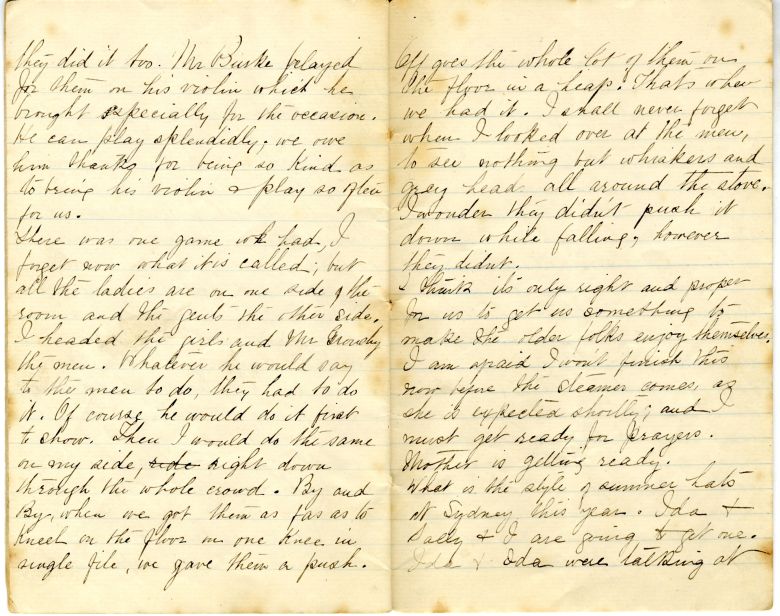 they did it too. Mr Burke played
for them on his violin which he
brought especially for the occasion.
He can play splendidly, we owe
him thanks for being so kind as
to bring his violin & play so often
for us.
There was one game we had, I
forget now what it is called, but
all the ladies are on one side of the
room and the gents the other side.
I headed the girls and Mr
the men. Whatever he would say
to the men to do, they had to do
it. Of course he would do it first
to show. Then I would do the same
on my side, side right down
through the whole crowd. By and
By, when we got them as far as to
kneel on the floor on one knee in
single file, we gave them a push.
Off goes the whole lot of them on
the floor in a heap. That's when
we had it. I shall never forget
when I looked over at the men,
to see nothing but whiskers and
grey heads all around the stove.
I wonder they didn't push it
down while falling, however
they didn't.
I think its only right and proper
for us to get us something to
make the older folks enjoy themselves.
I am afraid I won't finish this
now before the steamer comes, as
she is expected shortly, and I
must get ready for prayers.
Mother is getting ready.
What is the style of summer hats
at Sydney this year. Ida &
& I are going to get one.
Ida & Ida were talking at